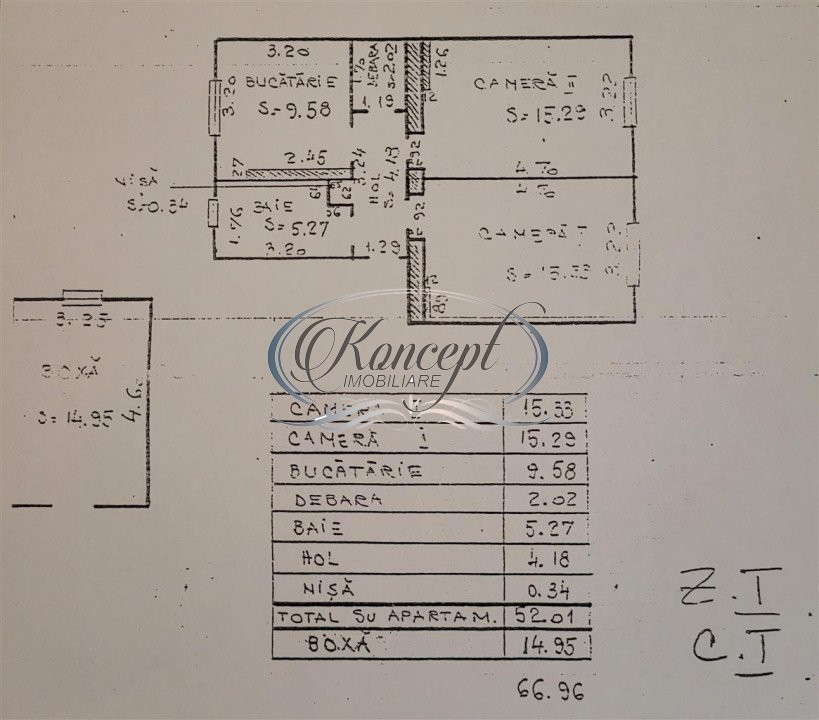 3.20
BUCĂTĂRIE
S=9.58
3.20
DEBARA
S=2.02
1.19
1.26
CAMERĂ II
S=15.29
3.22
2.45
27
3.24
HOL
S=4.18
92
4.76
4.76
NIȘĂ
S=0.34
64
62
BAIE
S=5.27
1.76
3.20
1.29
92
CAMERĂ I
S=15.33
3.22
3.25
BOXĂ
S=14.95
Koncept
IMOBILIARE
CAMERA 15.33
CAMERĂ 15.29
BUCĂTĂRIE 9.58
DEBARA 2.02
BAIE 5.27
HOL 4.18
NIȘĂ 0.34
TOTAL SU APARTAM. 52.01
BOXĂ 14.95
66.96
Z.I
C.I